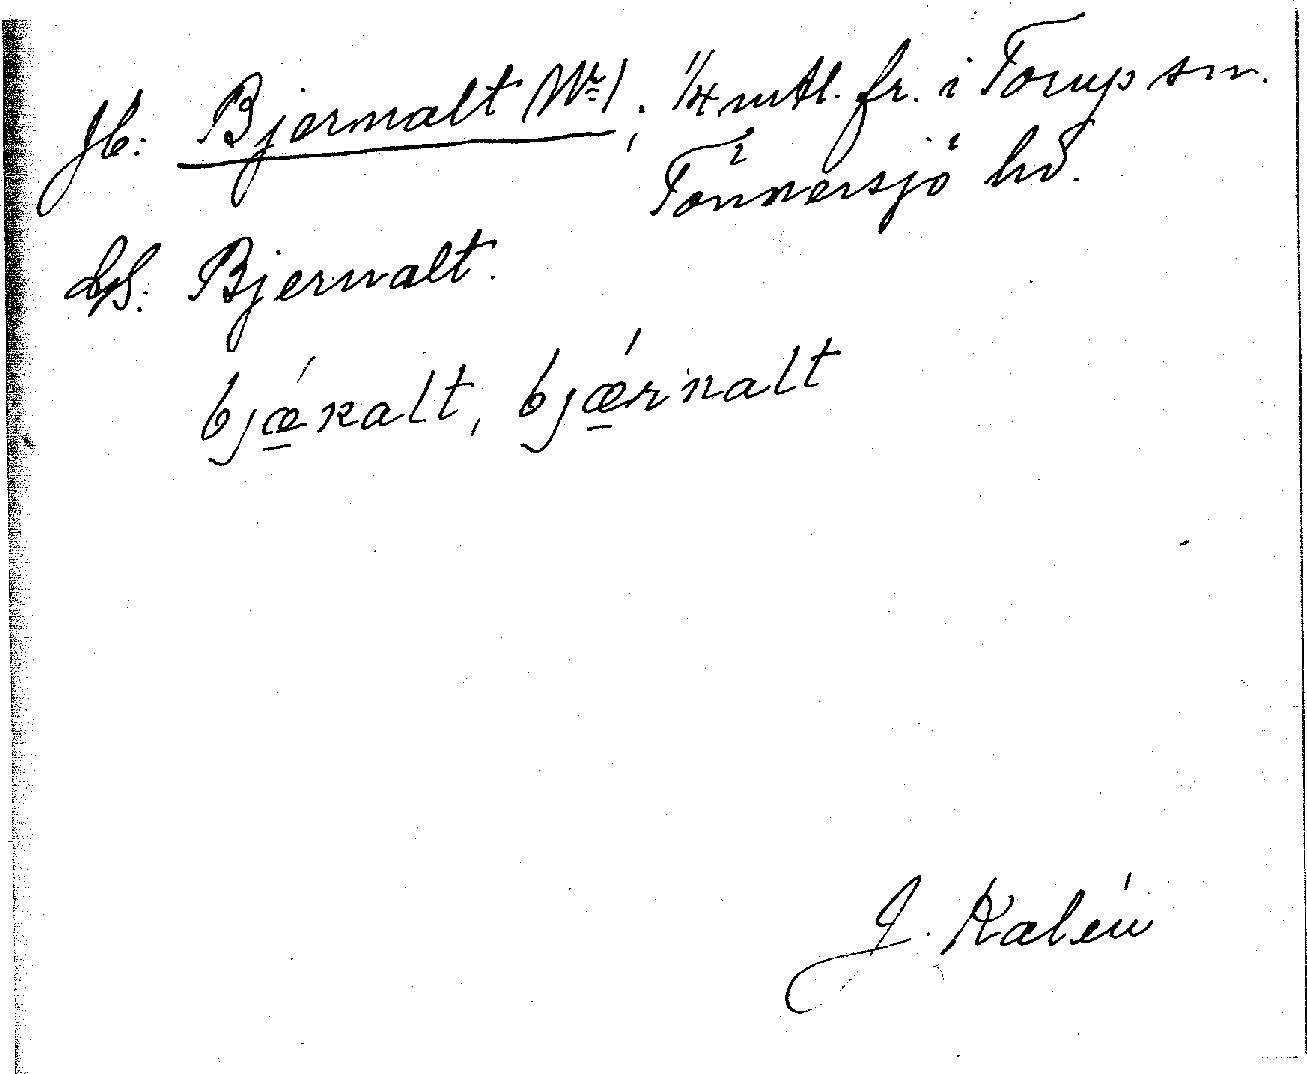 Jb: Bjernalt Nr 1; 1/4 mtl. fr. i Torup sn.
Tönnersjö hd.
Bjernalt.
bjǽnalt, bjǽrnalt
J. Kalén